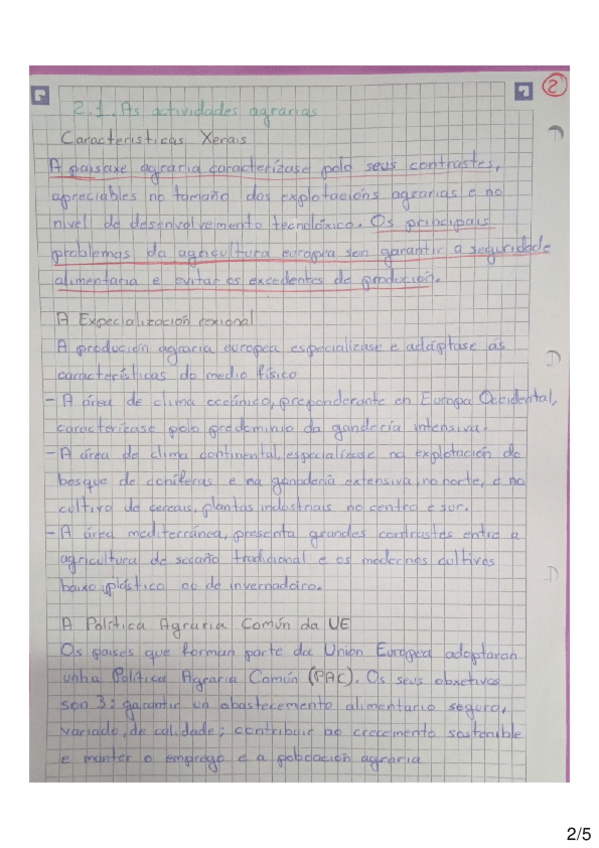 2
2.1. As actividades agrarias
Características Xerais
A paisaxe agraria caracterízase polo seus contrastes,
apreciables no tamaño das explotacións agrarias e no
nivel de desenvolvemento tecnolóxico. Os principais
problemas da agricultura europea son garantir a seguridade
alimentaria e evitar os excedentes de produción.
A Especialización rexional
A produción agraria europea especialízase e adáptase ás
características do medio físico
- A área de clima oceánico, preponderante en Europa Occidental,
caracterízase polo predominio da gandería intensiva.
- A área de clima continental, especialízase na explotación do
bosque de coníferas e na ganadería extensiva, no norte, e no
cultivo de cereais, plantas industriais no centro e sur.
- A área mediterránea, presenta grandes contrastes entre a
agricultura de secaño tradicional e os modernos cultivos
baixo plástico ou de invernadoiro.
A Política Agraria Común da UE
Os países que forman parte da Unión Europea adoptaron
unha Política Agraria Común (PAC). Os seus obxetivos
son 3: garantir un abastecemento alimentario seguro,
variado, de calidade; contribuír ao crecemento sostenible
e manter o emprego e a poboación agraria
2/5